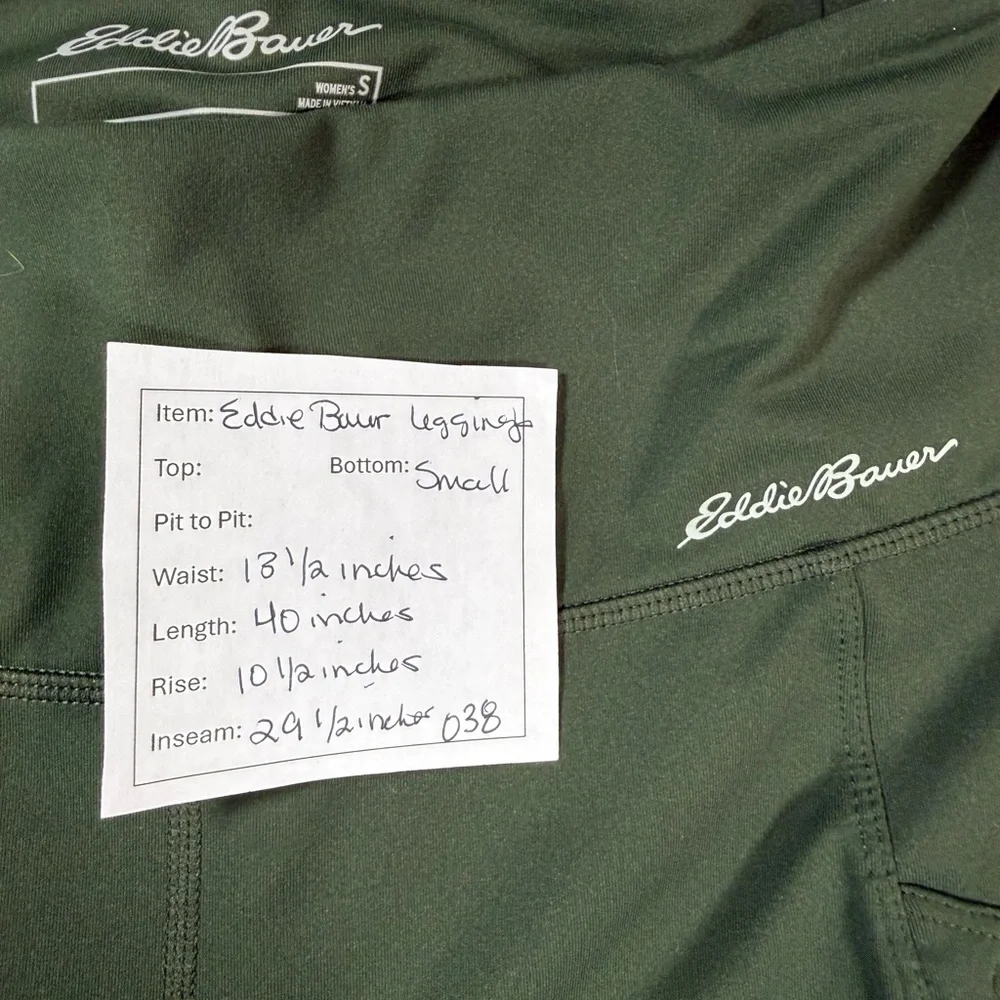 Eddie Bauer
WOMEN'S S
MADE IN VIETNAM
Item: Eddie Bauer Leggings
Top: Bottom: Small
Pit to Pit:
Waist: 13 1/2 inches
Length: 40 inches
Rise: 10 1/2 inches
Inseam: 29 1/2 inches 038
Eddie Bauer